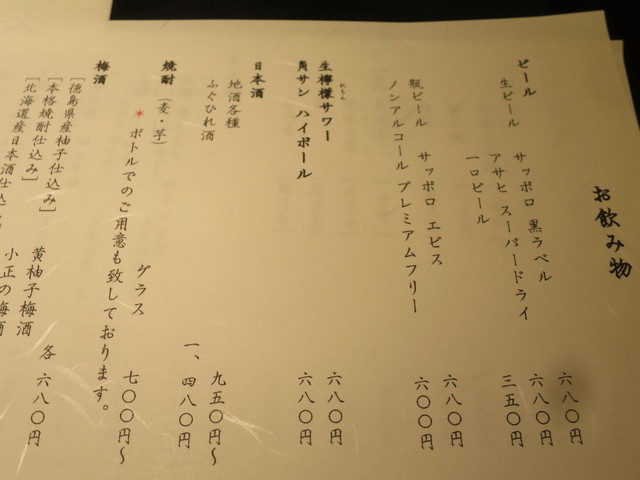 お飲み物
ビール
生ビール サッポロ 黒ラベル 六八〇円
アサヒ スーパードライ 六八〇円
一口ビール 三五〇円
瓶ビール サッポロ エビス 六八〇円
ノンアルコール プレミアムフリー 六〇〇円
生檸檬サワー 六八〇円
角サン ハイボール 六八〇円
日本酒
地酒各種 九五〇円〜
ふぐひれ酒 一、四八〇円
焼酎（麦・芋） グラス 七〇〇円〜
* ボトルでのご用意も致しております。
梅酒
［徳島県産柚子仕込み］ 黄柚子梅酒 各 六八〇円
［本格焼酎仕込み］ 小正の梅酒
［北海道産日本酒仕込